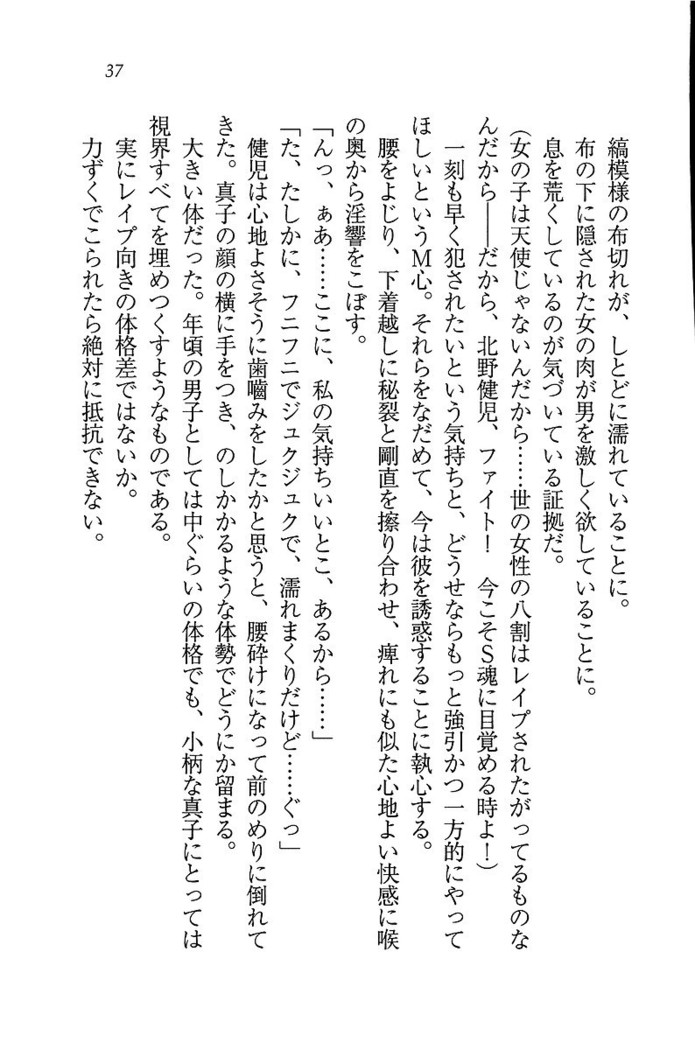 37
縞模様の布切れが、しとどに濡れていることに。
布の下に隠された女の肉が男を激しく欲していることに。
息を荒くしているのが気づいている証拠だ。
(女の子は天使じゃないんだから……世の女性の八割はレイプされたがってるものな
んだから――だから、北野健児、ファイト！　今こそS魂に目覚める時よ！)
一刻も早く犯されたいという気持ちと、どうせならもっと強引かつ一方的にやって
ほしいというM心。それらをなだめて、今は彼を誘惑することに執心する。
腰をよじり、下着越しに秘裂と剛直を擦り合わせ、痺れにも似た心地よい快感に喉
の奥から淫響をこぼす。
「んっ、ぁあ……ここに、私の気持ちいいとこ、あるから……」
「た、たしかに、フニフニでジュクジュクで、濡れまくりだけど……ぐっ」
健児は心地よさそうに歯嚙みをしたかと思うと、腰砕けになって前のめりに倒れて
きた。真子の顔の横に手をつき、のしかかるような体勢でどうにか留まる。
大きい体だった。年頃の男子としては中ぐらいの体格でも、小柄な真子にとっては
視界すべてを埋めつくすようなものである。
実にレイプ向きの体格差ではないか。
力ずくでこられたら絶対に抵抗できない。